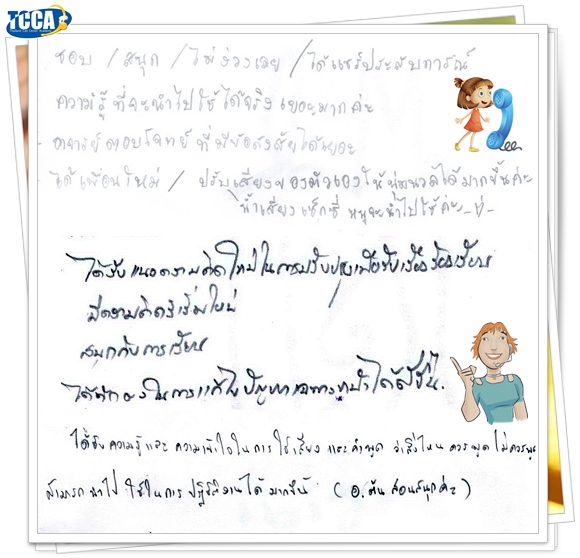 TCCA
Thailand Call Center Academy
ชอบ / สนุก / ไม่ง่วงเลย / ได้แชร์ประสบการณ์
ความรู้ที่จะนำไปใช้ได้จริงเยอะมากค่ะ
- อาจารย์ตอบโจทย์ที่มีข้อสงสัยได้เยอะ
- ได้เพื่อนใหม่ / ปรับเสียงของตัวเองให้นุ่มนวลได้มากขึ้นค่ะ
น้ำเสียงเซ็กซี่ หนูจะนำไปใช้ค่ะ
ได้รับแนวความคิดใหม่ในการปรับปรุงเพื่อรับเรื่องร้องเรียน
มีความคิดริเริ่มใหม่
สนุกกับการเรียน
ได้ในการแก้ไขปัญหาเฉพาะหน้าได้ดีขึ้น.
ได้รับความรู้และความเข้าใจในการใช้เสียง และคำพูด ว่าสิ่งไหนควรพูด ไม่ควรพูด
สามารถนำไปใช้ในการปฏิบัติงานได้มากขึ้น (อ.สอนสนุกค่ะ)